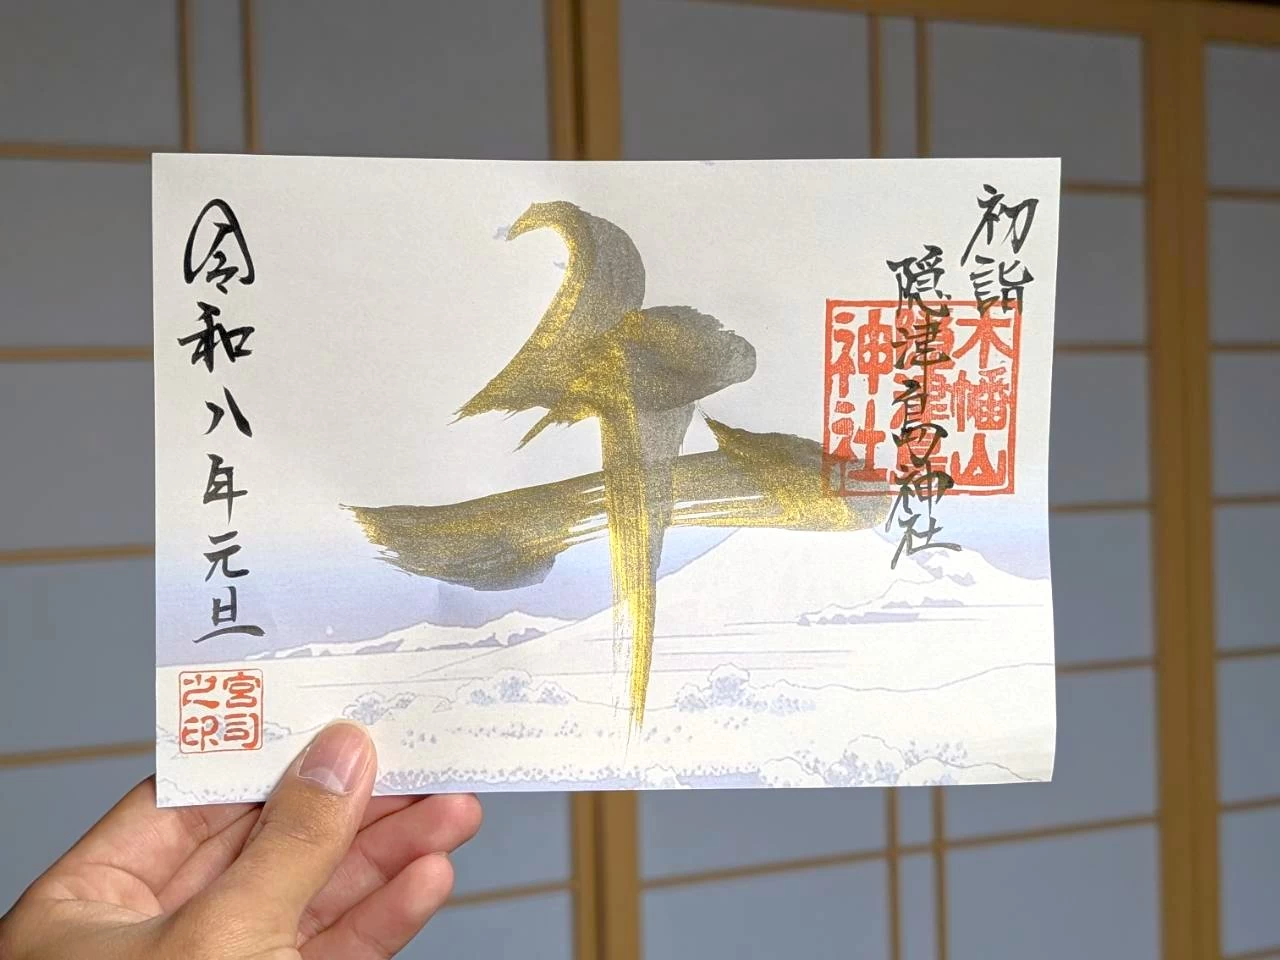 初詣
隠津島神社
木幡山
隠津島
神社
午
令和八年元旦
宮司
之印